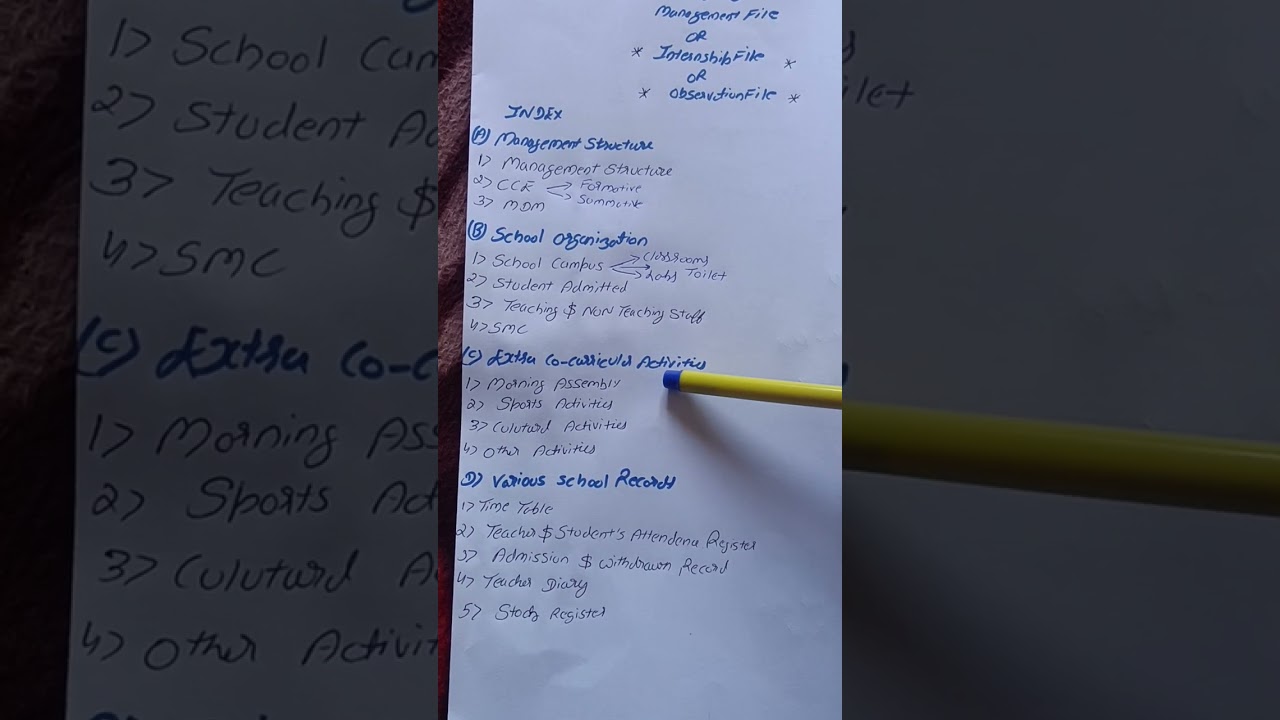 Management File
OR
* Internship File *
OR
* Observation File *
INDEX
(A) Management Structure
1) Management Structure
2) CCE Formative
Summative
3) MDM
(B) School Organization
1) School Campus Classrooms
Labs Toilet
2) Student Admitted
3) Teaching $ Non Teaching Staff
4) SMC
(C) Extra Co-curricular Activities
1) Morning Assembly
2) Sports Activities
3) Culuturd Activities
4) Other Activities
D) Various School Records
1) Time Table
2) Teacher $ Student's Attendena Register
3) Admission $ withdrawn Record
4) Teacher Diary
5) Stock Register